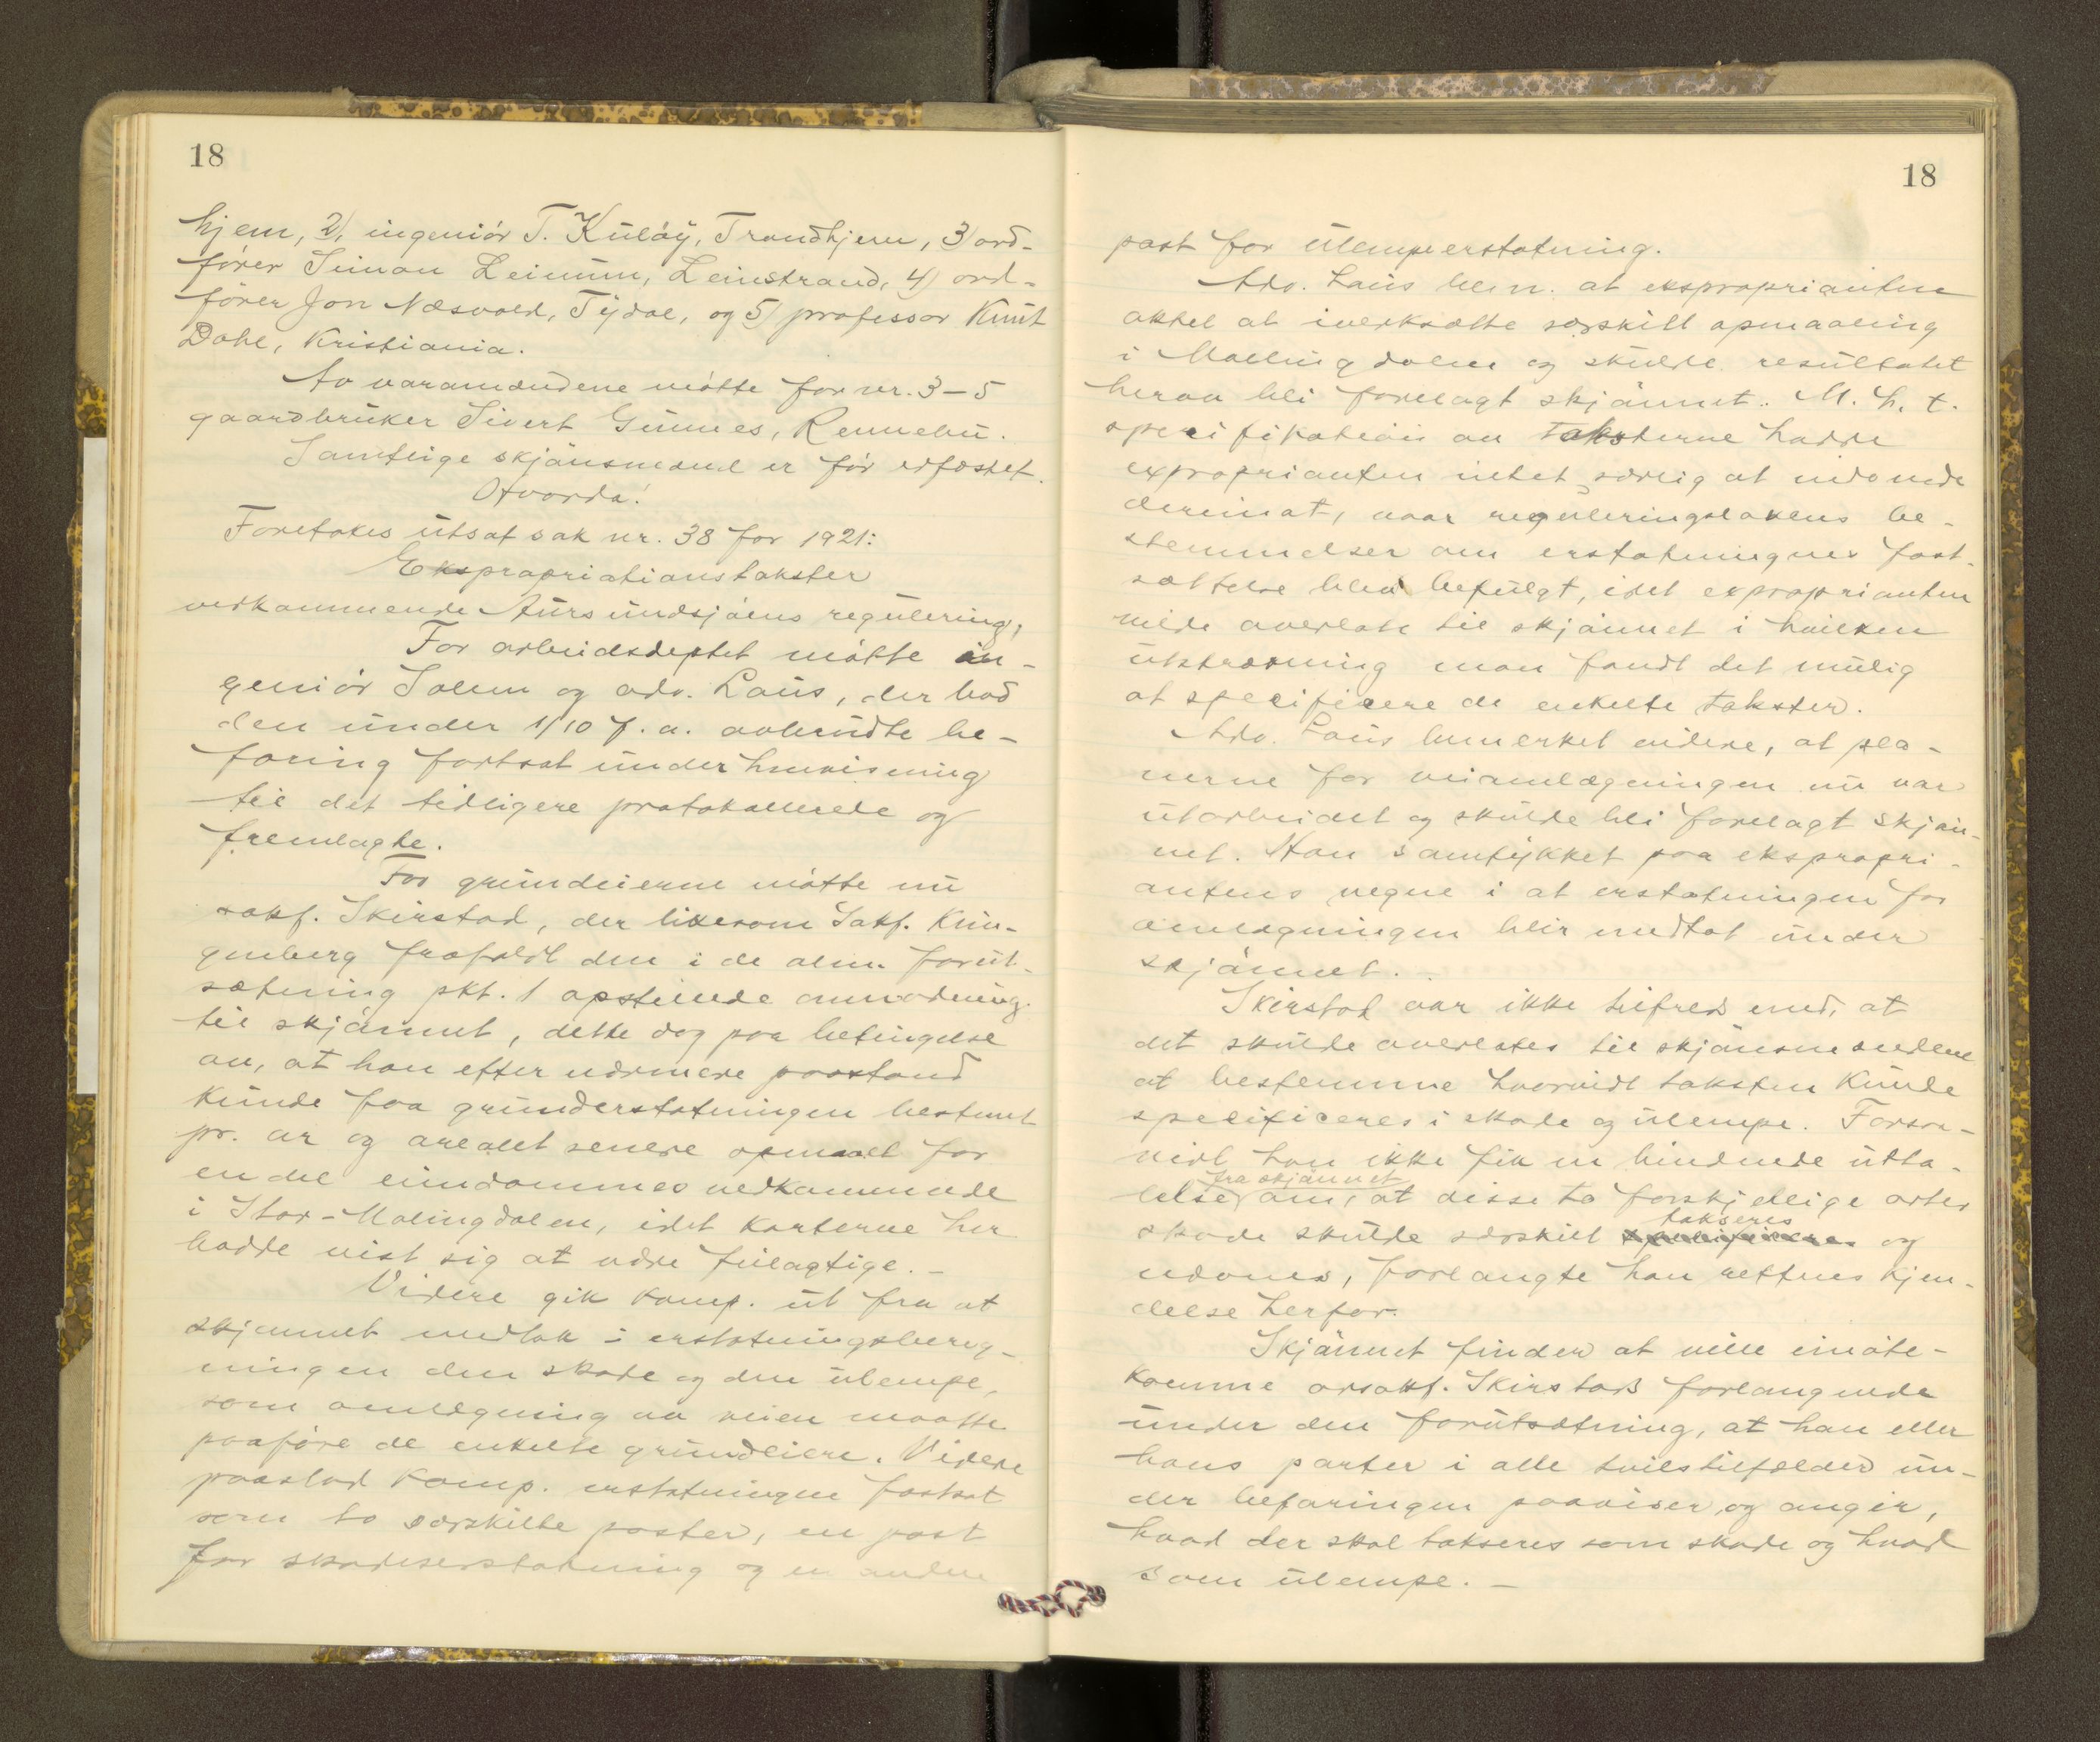 18
hjem, 2) ingeniór T. Kuløy, Trondhjem, 3) ord-
fører Simon Leinum, Leinstrand, 4) ord-
fører Jon Næsvold, Tydal, og 5) professor Knut
Dahl, Kristiania.
Av varamændene møtte for nr. 3-5
gaardbruker Sivert Gunnes, Rennebu.
Samtlige skjønsmænd er før edfæstet.
Hvorda!
Foretokes utsat sak nr. 38 for 1921:
Ekspropriationstakster
vedkommende Aursundsjøens regulering,
For arbeidsdeptet møtte in-
geniør Solem og adv. Laus, der bad
den under 1/10 f. a. avbrudte be-
faring fortsat under henvisning
til det tidligere protokollerede og
fremlagte.
For grundeierne møtte nu
sakf. Skirstad, der likesom Sakf. Klin-
genberg frafaldt den i de alm. forut-
sætning pkt. 1 opstillede anmodning
til skjønnet, dette dog paa betingelse
av, at han efter nærmere paastand
kunde faa grunderstatningen bestemt
pr. ar og arealet senere opmaalt for
endel eiendommes vedkommende
i Stor-Malingdalen, idet karterne her
hadde vist sig at være feilagtige. -
Videre gik komp. ut fra at
skjønnet medtok i erstatningsbereg-
ningen den skade og den ulempe,
som omlægning av veien maatte
paaføre de enkelte grundeiere. Videre
paastod komp. erstatningen fastsat
som to særskilte poster, en post
for skadeserstatning og en anden
18
post for ulempeerstatning.
Adv. Laus bem. at eksproprianten
aktet at iverksætte særskilt opmaaling
i Mallingdalen og skulde resultatet
herav bli forelagt skjønnet. M. h. t.
specifikation av taksterne hadde
exproprianten intet særlig at indvende
derimot, naar reguleringslovens be-
stemmelser om erstatningens fast-
sættelse blev befulgt, idet exproprianten
vilde overlate til skjønnet i hvilken
utstrækning man fandt det mulig
at specificere de enkelte takster.
Adv. Laus bemerket videre, at pla-
nerne for veiomlægningen nu var
utarbeidet og skulde bli forelagt skjøn-
net. Han samtykket paa ekspropri-
antens vegne i at erstatningen for
omlægningen blir medtat under
skjønnet.
Skirstad var ikke tilfreds med, at
det skulde overlates til skjønsmændene
at bestemme hvorvidt taksten kunde
specificeres i skade og ulempe. Forsaa-
vidt han ikke fik en bindende utta-
fra skjønnet
lelse om, at disse to forskjellige arter
takseres
skade skulde særskilt og
nævnes, forlangte han rettens kjen-
delse herfor.
Skjønnet finder at ville imøte-
komme orsakf. Skirstads forlangende
under den forutsætning, at han eller
hans parter i alle tvilstilfælder un-
der befaringen paaviser og angir,
hvad der skal takseres som skade og hvad
som ulempe. -